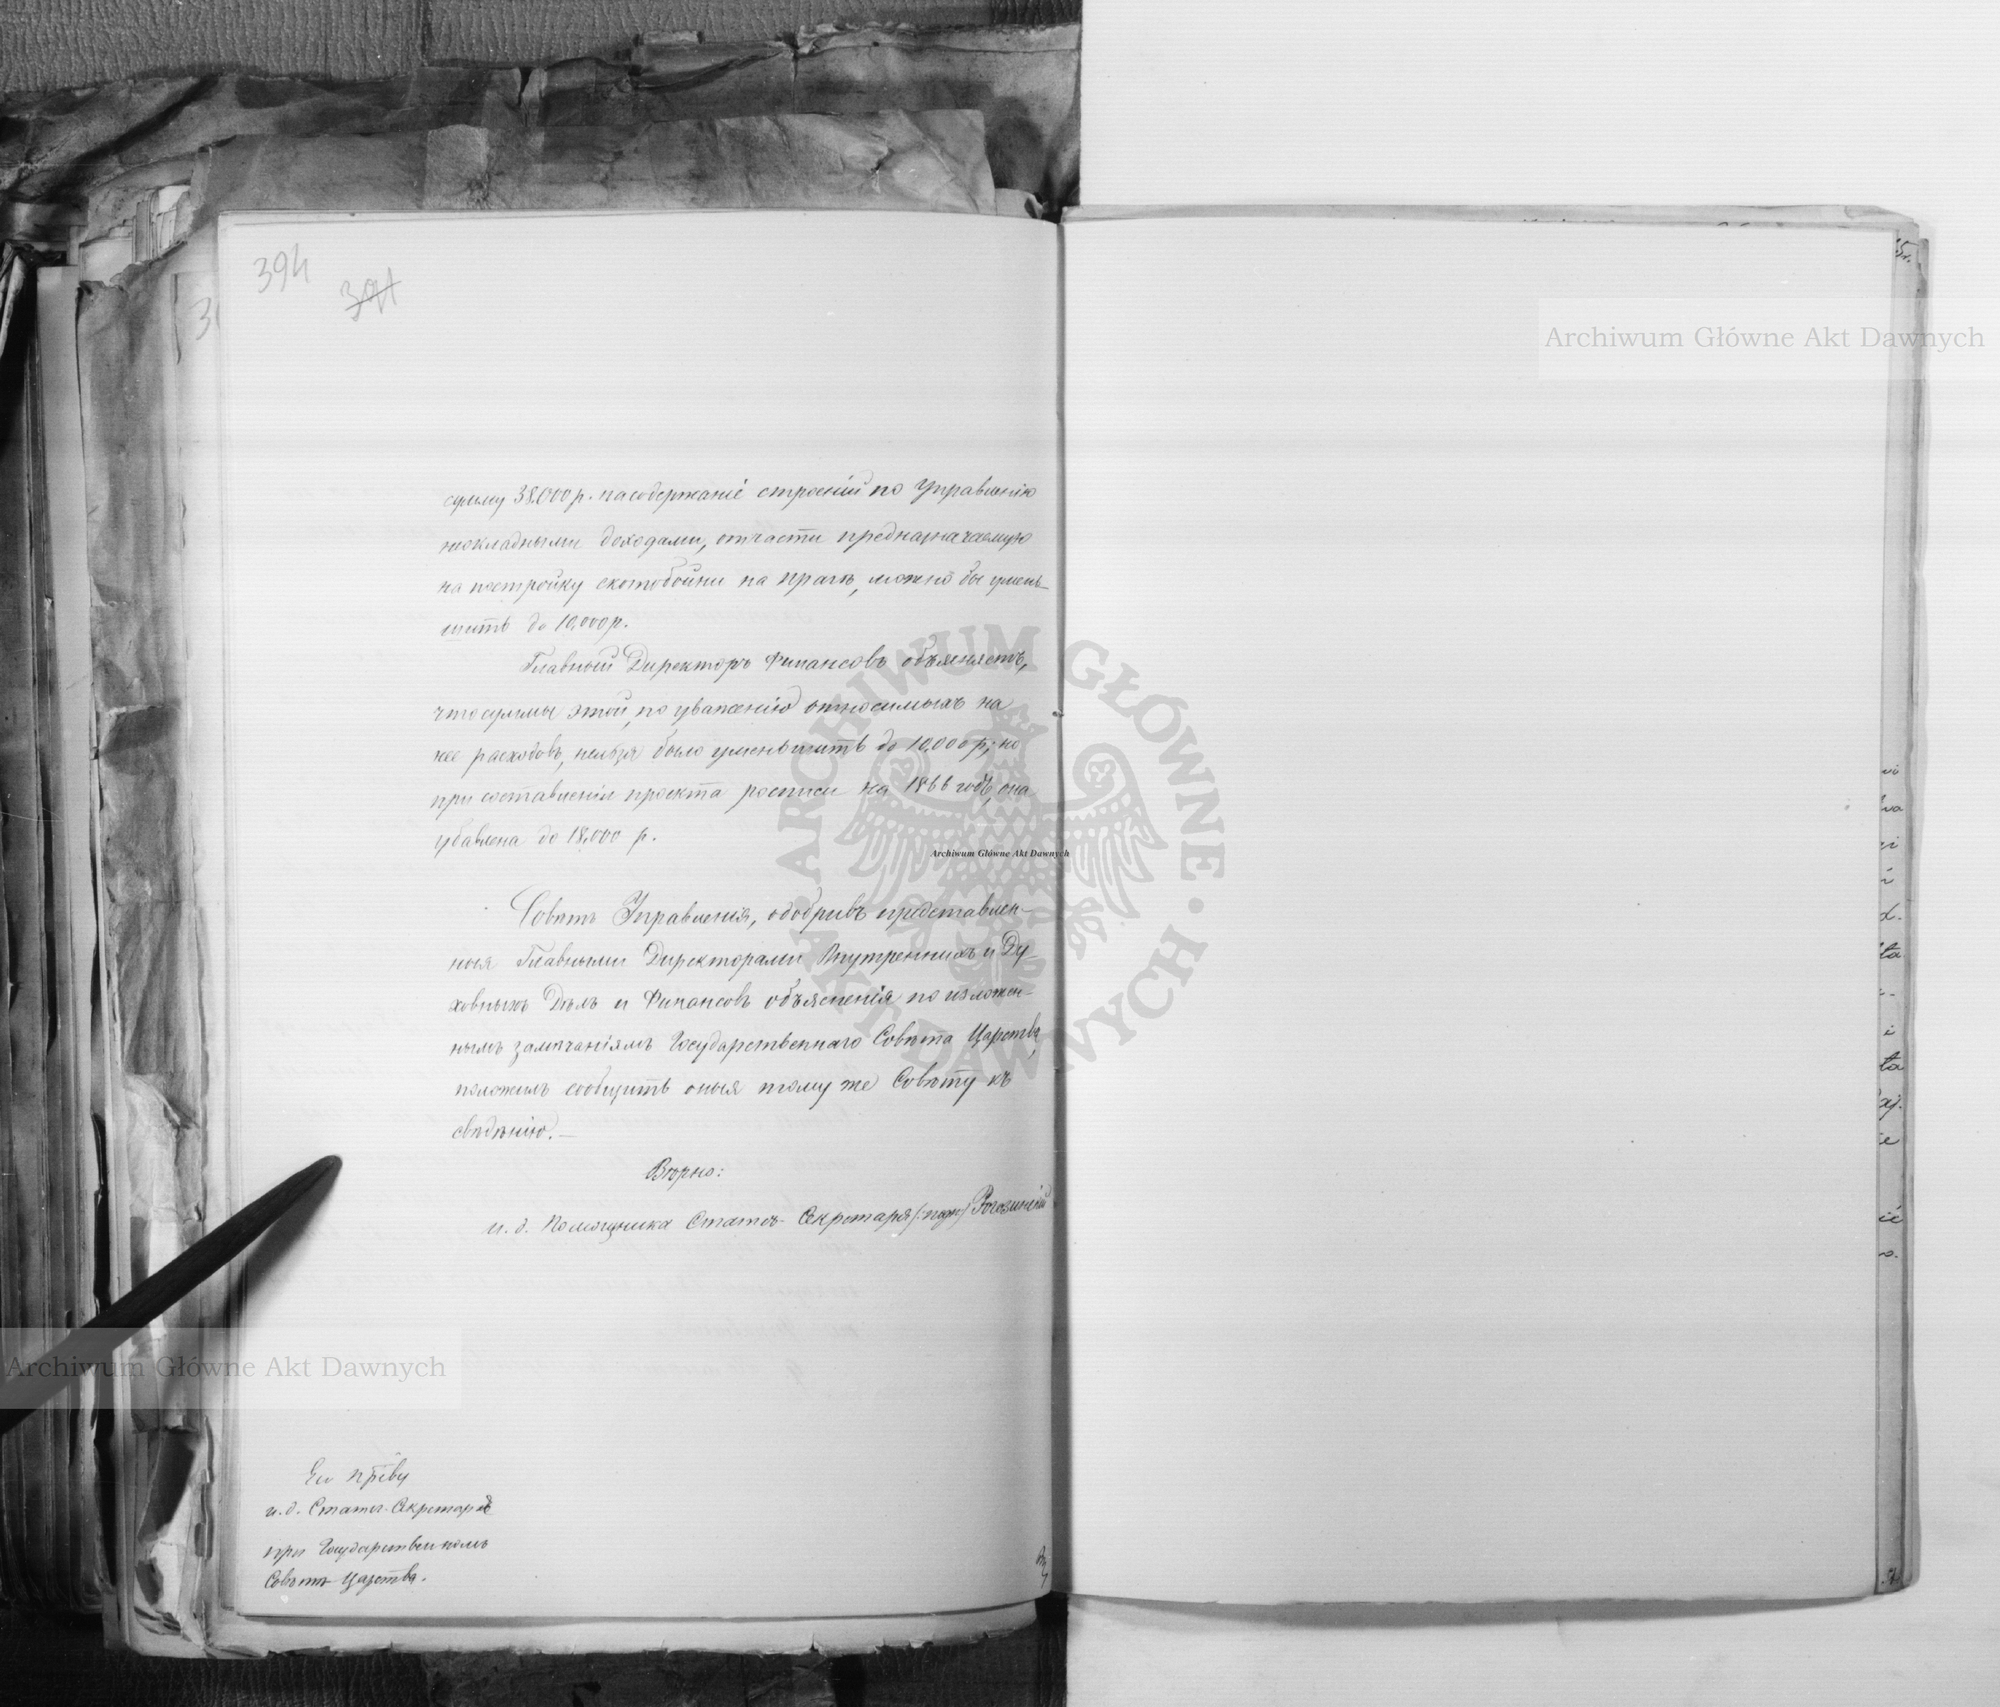 394
391
сумму 38,000 р. на содержаніе строеній по Управленію
неокладными доходами, отчасти предназначаемую
на постройку скотобойни на Прагѣ, можно бы умень-
шить до 10,000 р.
Главный Директоръ Финансовъ объясняетъ,
что суммы этой, по уваженію относимыхъ на
нее расходовъ, нельзя было уменьшить до 10,000 р.; но
при составленіи проекта росписи на 1866 годъ, она
убавлена до 18,000 р.
Совѣтъ Управленія, одобривъ представлен-
ныя Главными Директорами Внутреннихъ и Ду-
ховныхъ Дѣлъ и Финансовъ объясненія по изложен-
нымъ замѣчаніямъ Государственнаго Совѣта Царства,
положилъ сообщить оныя тому же Совѣту къ
свѣдѣнію. —
Вѣрно:
и. д. Помощника Статсъ-Секретаря
Его Прѣву
и. д. Статсъ-Секретаря
при Государственномъ
Совѣтѣ Царства.
Archiwum Główne Akt Dawnych
Archiwum Główne Akt Dawnych
Archiwum Główne Akt Dawnych
ARCHIWUM GŁÓWNE AKT DAWNYCH